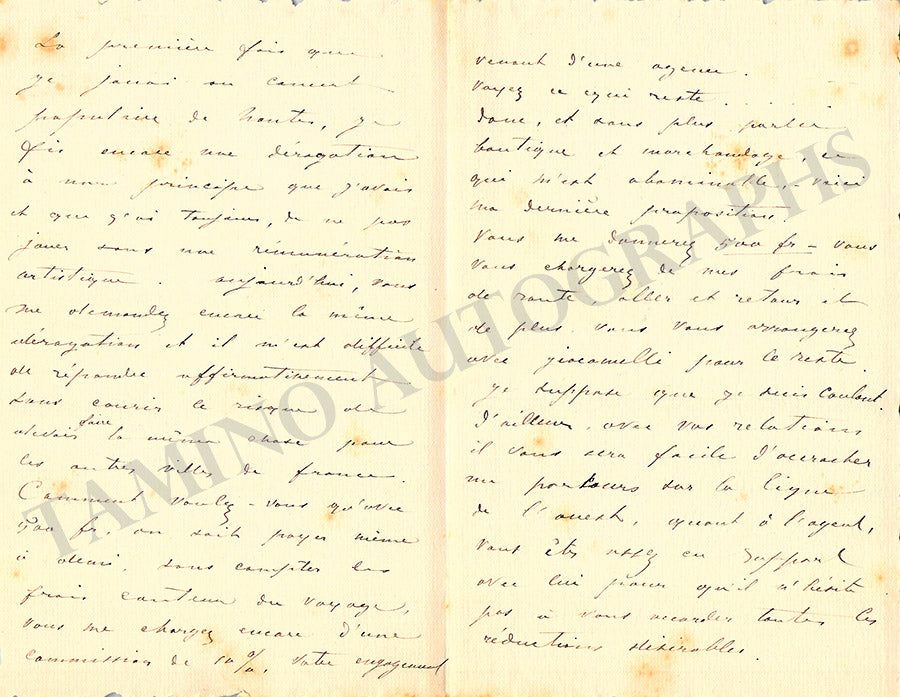 La première fois que
je jouai au concert
populaire de Nantes, je
fis encore une dérogation
à mon principe que j'avais
et que j'ai toujours, de ne pas
jouer sans une rémunération
artistique. aujourd'hui, vous
me demandez encore la même
dérogation et il m'est difficile
de répondre affirmativement
sans courir le risque de
devoir faire la même chose pour
les autres villes de france.
Comment voulez-vous qu'avec
500 fr, on soit payer même
à demi, sans compter les
frais du voyage,
vous me chargez encore d'une
commission de 10%, votre engagement
venant d'une agence.
Voyez ce qui reste . . . . .
donc, et sans plus parler
boutique et marchandage, ce
qui m'est abominable, - voici
ma dernière proposition.
Vous me donnerez 500 fr - vous
vous chargerez de mes frais
de route, aller et retour et
de plus, vous vous arrangerez
avec giacomelli pour le reste.
Je suppose que je suis coulant.
D'ailleurs, avec vos relations
il vous sera facile d'accrocher
un parcours sur la ligne
de l'ouest, quant à l'agent,
vous êtes assez en rapport
avec lui pour qu'il n'hésite
pas à vous accorder toutes les
réductions désirables.
TAMINO AUTOGRAPHS